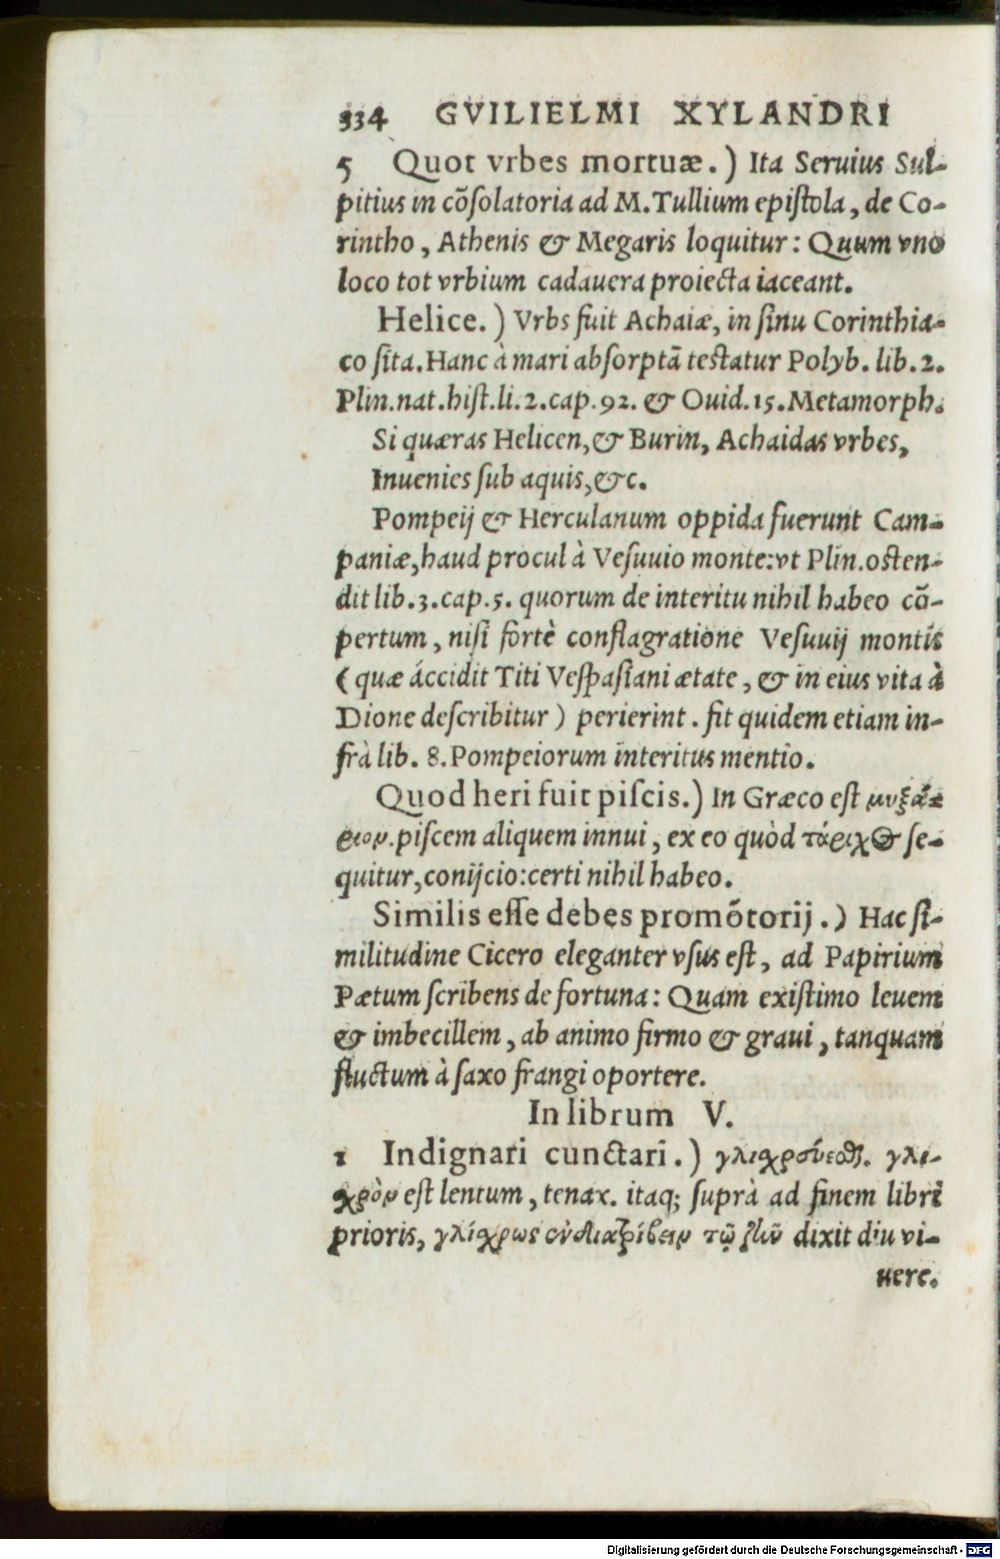 334 GVILIELMI XYLANDRI
5 Quot vrbes mortuæ.) Ita Seruius Sul-
pitius in cõſolatoria ad M.Tullium epiſtola, de Co-
rintho, Athenis & Megaris loquitur: Quum vno
loco tot vrbium cadauera proiecta iaceant.
Helice.) Vrbs fuit Achaiæ, in ſinu Corinthia-
co ſita. Hanc à mari abſorptã teſtatur Polyb. lib. 2.
Plin.nat.hiſt.li.2.cap.92. & Ouid.15.Metamorph.
Si quæras Helicen,& Burin, Achaidas vrbes,
Inuenies ſub aquis,&c.
Pompeij & Herculanum oppida fuerunt Cam-
paniæ,haud procul à Veſuuio monte:vt Plin.oſten-
dit lib.3.cap.5. quorum de interitu nihil habeo cõ-
pertum, niſi fortè conflagratione Veſuuij montis
(quæ áccidit Titi Veſpaſiani ætate, & in eius vita à
Dione deſcribitur) perierint. fit quidem etiam in-
frà lib. 8. Pompeiorum interitus mentio.
Quod heri fuit piſcis.) In Græco eſt μυξά-
ριον.piſcem aliquem innui, ex eo quòd τάριχος ſe-
quitur,conijcio:certi nihil habeo.
Similis eſſe debes promõtorij.) Hac ſi-
militudine Cicero eleganter vſus eſt, ad Papirium
Pætum ſcribens de fortuna: Quam exiſtimo leuem
& imbecillem, ab animo firmo & graui, tanquam
fluctum à ſaxo frangi oportere.
In librum V.
1 Indignari cunctari.) γλιχρσύεσθ. γλι-
χρὸν eſt lentum, tenax. itaq; ſuprà ad finem libri
prioris, γλίχρως ἐνδιατρίβειν τῷ ζῆν dixit diu vi-
uere.
Digitalisierung gefördert durch die Deutsche Forschungsgemeinschaft - DFG